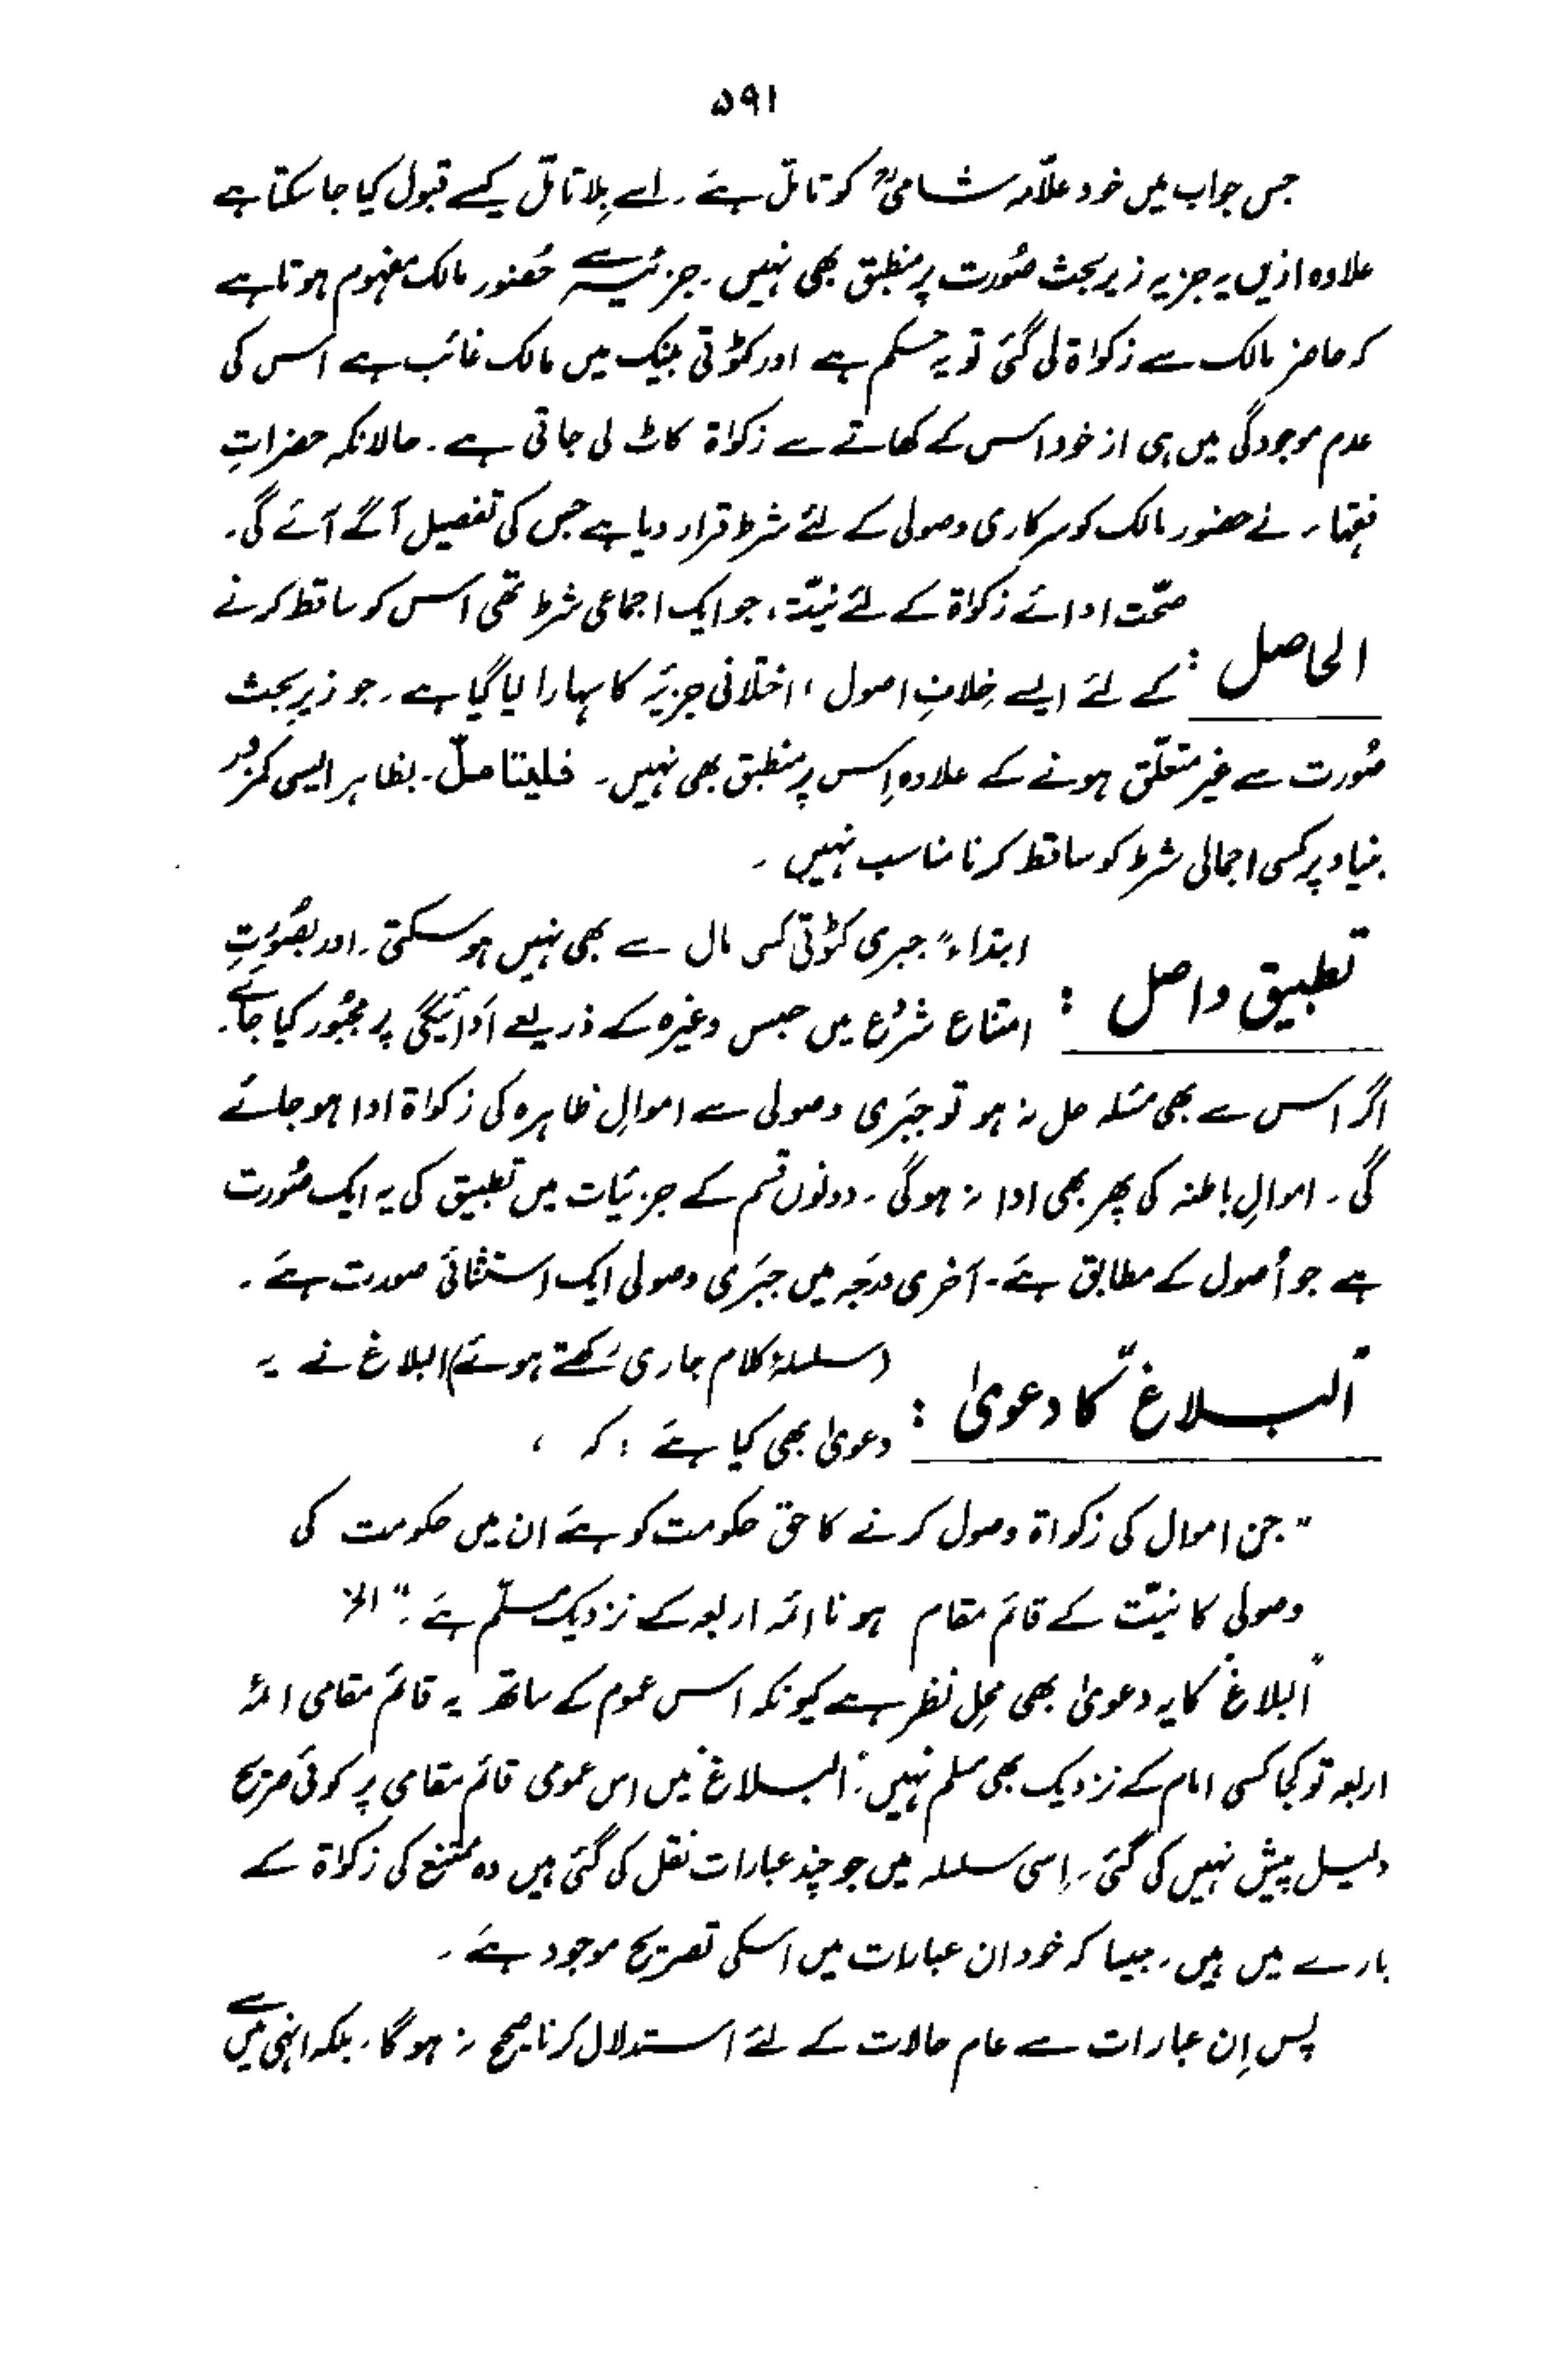 ۵۹۱
جس جواب میں خود علّامہ شامیؒ کو تامّل ہے۔ اسے بِلا تامّل کیسے قبول کیا جا سکتا ہے
علاوہ ازیں یہ جزیہ زیرِ بحث صُورت پر منطبق بھی نہیں۔ جزئیہ سے حُضور مالک مفہوم ہوتا ہے
کہ حاضر مالک سے زکواۃ لی گئی تو یہ حکم ہے اور کٹوتی بینک میں مالک غائب ہے اس کی
عدم موجودگی میں ہی از خود اس کے کھاتے سے زکواۃ کاٹ لی جاتی ہے۔ حالانکہ حضراتِ
فقہاء نے حضور مالک کو سرکاری وصولی کے لئے شرط قرار دیا ہے جس کی تفصیل آگے آئے گی۔
الحاصل : صحّت ادائے زکواۃ کے لئے نیّت، جو ایک اجماعی شرط تھی اس کو ساقط کرنے
کے لئے ایسے خِلافِ اصول، اختلافی جزیۂ کا سہارا لیا گیا ہے۔ جو زیرِ بحث
صُورت سے غیر متعلّق ہونے کے علاوہ اِس پر منطبق بھی نہیں۔ فلیتامّل۔ بظاہر ایسی کمزور
بنیاد پر کسی اجمالی شرط کو ساقط کرنا مناسب نہیں۔
تطبیق واصل : ابتداءً جبری کٹوتی کسی مال سے بھی نہیں ہو سکتی۔ اور بصُورتِ
امتناع شرُوع میں حبس وغیرہ کے ذریعے ادَائیگی پر مجبُور کیا جائے۔
اگر اس سے بھی مسئلہ حل نہ ہو تو جبَری وصولی سے اموالِ ظاہرہ کی زکواۃ ادا ہو جائے
گی۔ اموالِ باطنہ کی پھر بھی ادا نہ ہوگی۔ دونوں قسم کے جزئیات میں تطبیق کی یہ ایک صُورت
ہے جو اُصول کے مطابق ہے۔ آخری درجَہ میں جبَری وصولی ایک استثنائی صورت ہے۔
"البلاغ" کا دعویٰ : (سلسلۂ کلام جاری رکھتے ہوئے) البلاغ نے یہ
دعویٰ بھی کیا ہے؛ کہ،
"جن اموال کی زکواۃ وصول کرنے کا حق حکومت کو ہے ان میں حکومت کی
وصولی کا نیّت کے قائم مقام ہونا ائمہ اربعہ کے نزدیک مسلّم ہے۔" الخ
"البلاغ" کا یہ دعویٰ بھی محلِ نظر ہے کیونکہ اس عموم کے ساتھ یہ قائم مقامی ائمہ
اربعہ تو کجا کسی امام کے نزدیک بھی مسلم نہیں۔ "البلاغ" میں اس عمومی قائم مقامی پر کوئی صریح
دلیل پیش نہیں کی گئی۔ اِسی سلسلہ میں جو چند عبارات نقل کی گئی ہیں وہ مُمتنع کی زکواۃ کے
بارے میں ہیں۔ جیسا کہ خود ان عبارات میں اسکی تصریح موجود ہے۔
پس اِن عبارات سے عام حالات کے لئے استدلال کرنا صحیح نہ ہوگا۔ بلکہ انہی میں سے